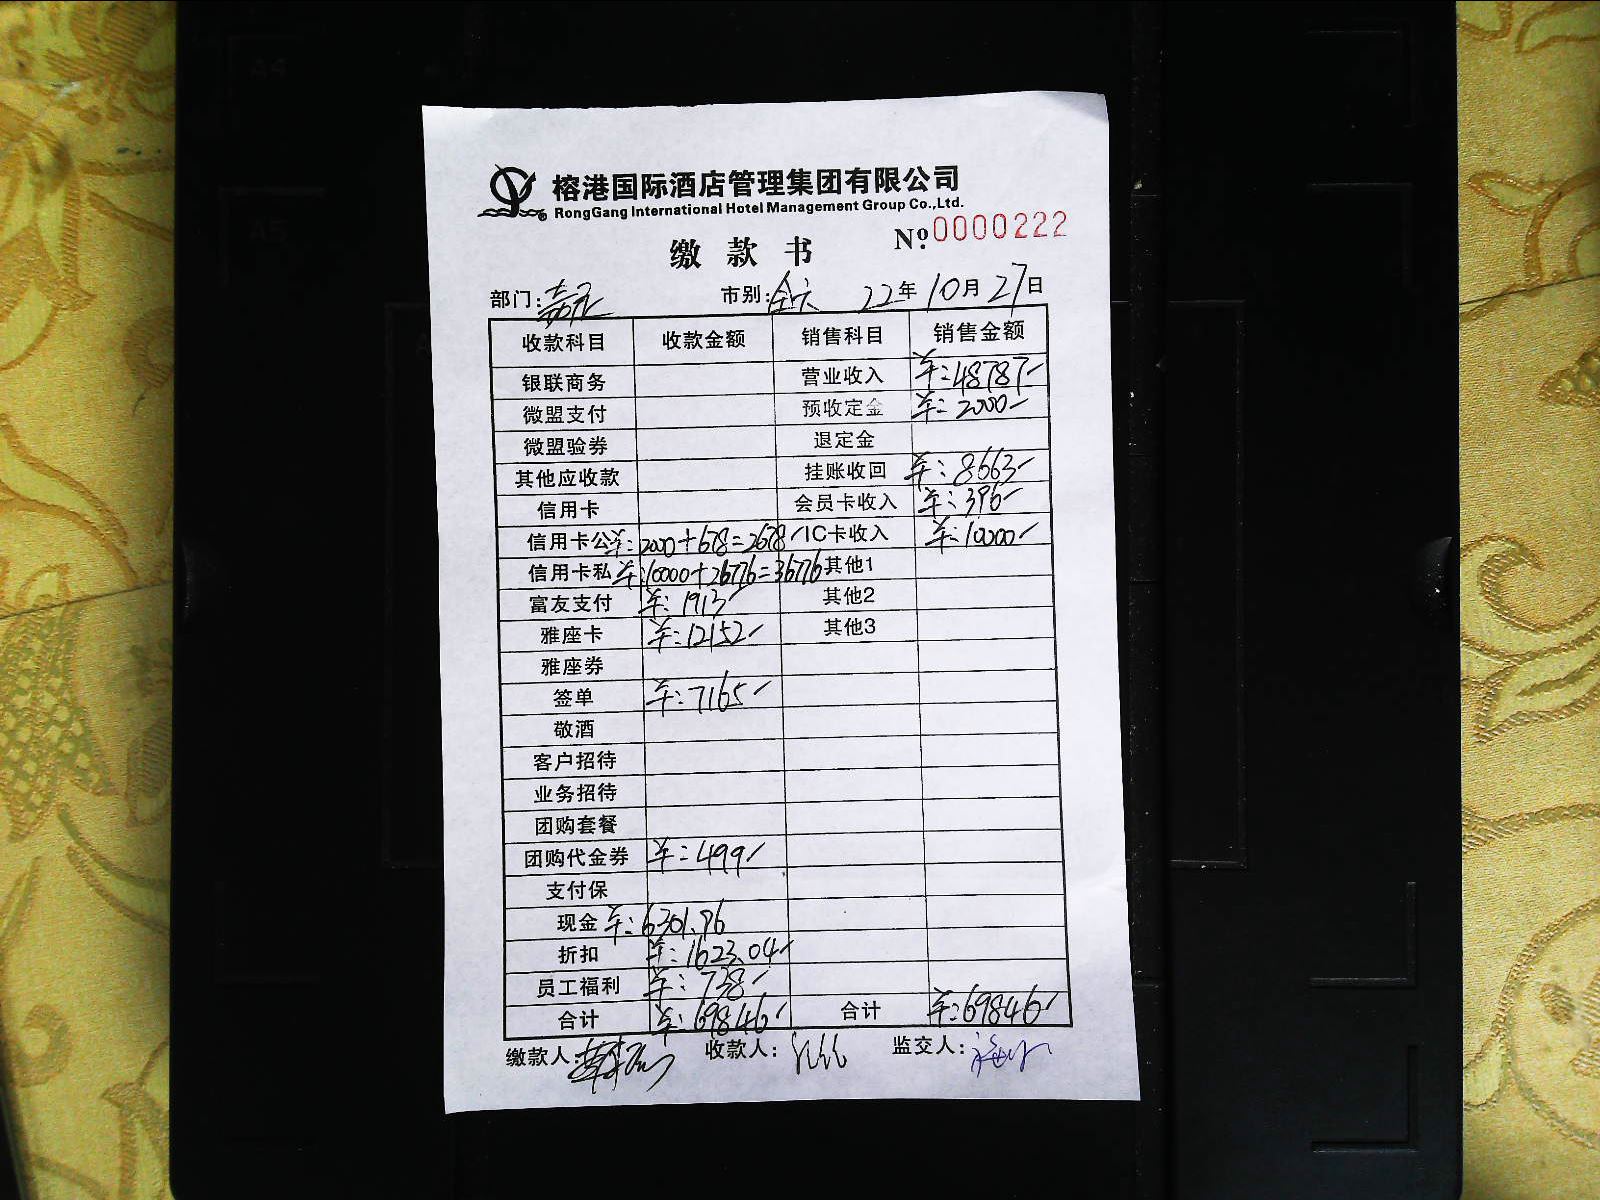 榕港国际酒店管理集团有限公司
RongGang International Hotel Management Group Co.,Ltd.
缴款书 Nº:0000222
部门: 市别: 22年10月27日
收款科目 收款金额 销售科目 销售金额
银联商务 营业收入 ¥:48787-
微盟支付 预收定金 ¥:2000-
微盟验券 退定金
其他应收款 挂账收回 ¥:8663-
信用卡 会员卡收入 ¥:396-
信用卡公 ¥:2000+678=2678- IC卡收入 ¥:10000-
信用卡私 ¥:10000+26776=36776 其他1
富友支付 ¥:1913- 其他2
雅座卡 ¥:12152- 其他3
雅座券
签单 ¥:7165-
敬酒
客户招待
业务招待
团购套餐
团购代金券 ¥:499-
支付保
现金 ¥:6301.96
折扣 ¥:1623.04-
员工福利 ¥:738-
合计 ¥:69846- 合计 ¥:69846-
缴款人: 收款人: 监交人: